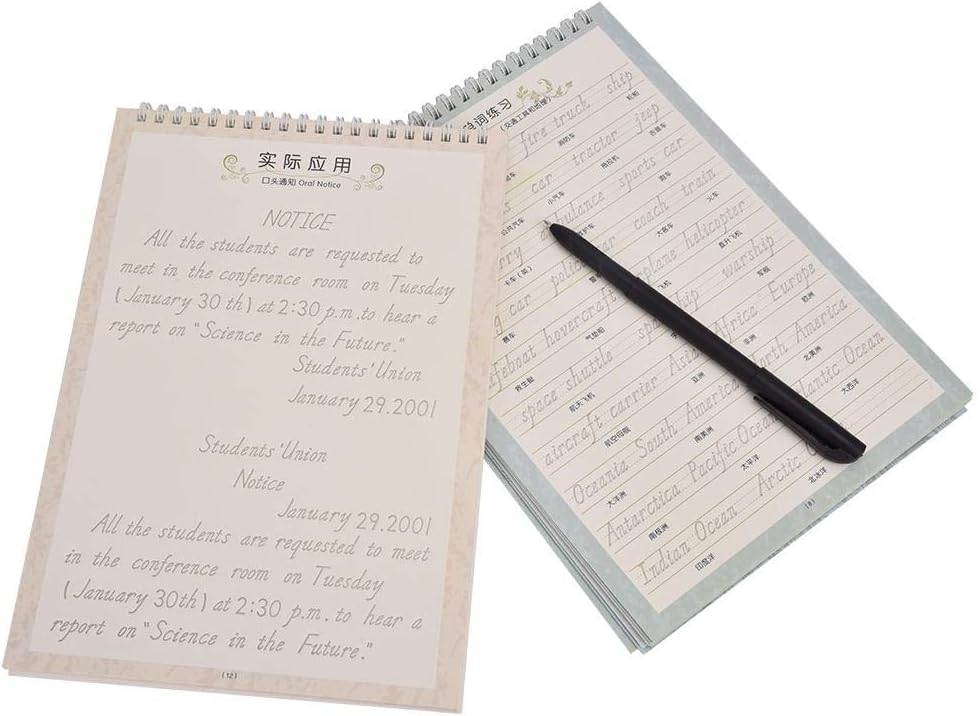 实际应用
口头通知 Oral Notice
NOTICE
All the students are requested to
meet in the conference room on Tuesday
(January 30th) at 2:30 p.m. to hear a
report on "Science in the Future."
Students' Union
January 29.2001
Students' Union
Notice
January 29.2001
All the students are requested to meet
in the conference room on Tuesday
(January 30th) at 2:30 p.m. to hear a
report on "Science in the Future."
(12)
词练习
(交通工具和地理)
fire truck ship
消防车 轮船
car tractor jeep
小汽车 拖拉机 吉普车
ambulance sports car
救护车 跑车
car coach train
大客车 火车
helicopter
卡车(英) 飞机 直升飞机
car warship
赛车 军舰
hovercraft Africa Europe
救生艇 气垫船 非洲 欧洲
space shuttle Asia North America
航天飞机 亚洲 北美洲
aircraft carrier South America Atlantic Ocean
航空母舰 南美洲 大西洋
Oceania Pacific Ocean
大洋洲 太平洋
Antarctica Arctic
南极洲 北冰洋
Indian Ocean
印度洋
(8)